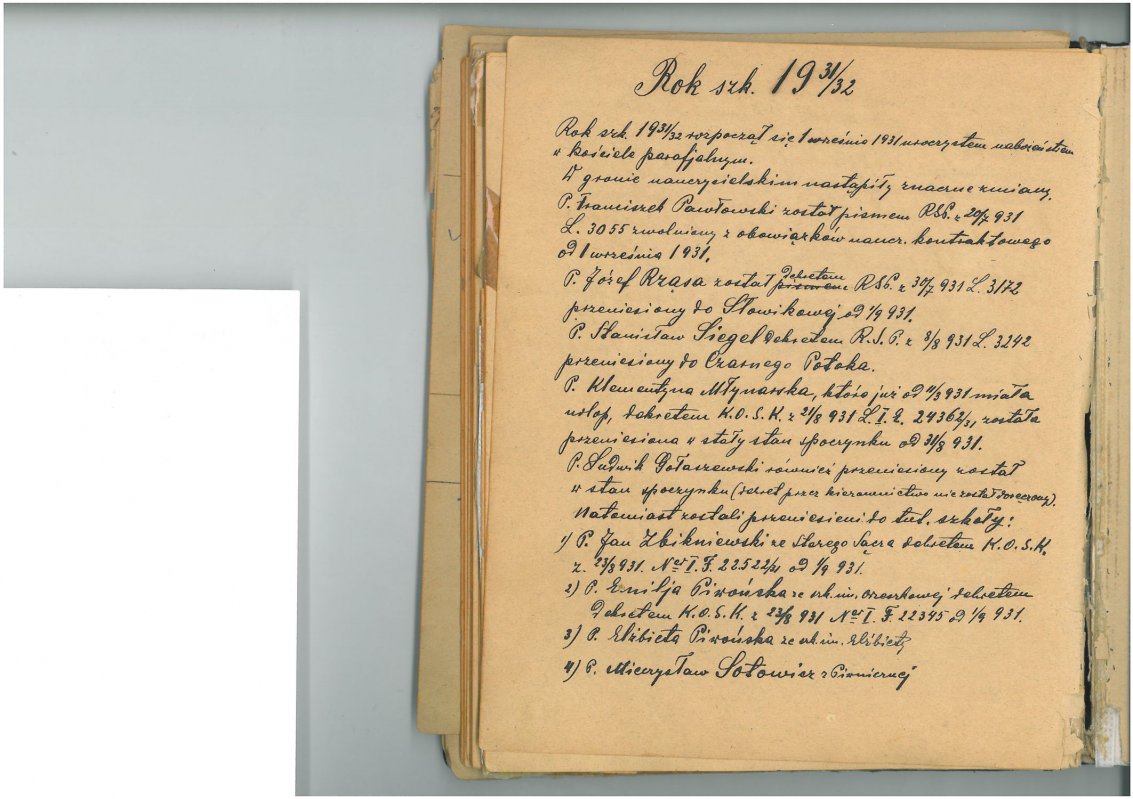 Rok szk. 19 31/32
Rok szk. 1931/32 rozpoczął się 1 września 1931 uroczystem nabożeństwem
w kościele parafjalnym.
W gronie nauczycielskim nastąpiły znaczne zmiany.
P. Franciszek Pawłowski został pismem RSP. z 20/7 931
L. 3055 zwolniony z obowiązków naucz. kontraktowego
od 1 września 1931.
P. Józef Rząsa został pismem dekretem RSP. z 30/7 931 L. 3172
przeniesiony do Słowikowej od 1/9 931.
P. Stanisław Siegel dekretem R.S.P. z 8/8 931 L. 3242
przeniesiony do Czarnego Potoka.
P. Klementyna Młynarska, która już od 11/3 931 miała
urlop, dekretem K.O.S.K z 21/8 931 L. I. 24362/31, została
przeniesiona w stały stan spoczynku od 31/8 931.
P. Ludwik Gołaszewski również przeniesiony został
w stan spoczynku (dekret przez kierownictwo nie został doręczony).
Natomiast zostali przeniesieni do tut. szkoły:
1) P. Jan Zbikniewski ze Starego Sącza dekretem K.O.S.K.
z. 23/8 931. Ner I. F. 22522/31 od 1/9 931.
2) P. Emilja Piwońska ze szk. im. Orzeszkowej dekretem
dekretem K.O.S.K z 23/8 931 Ner I. F. 22345 od 1/9 931.
3) P. Elżbieta Piwońska ze szk. im. Elżbiety
4) P. Mieczysław Sołowicz z Piwnicznej